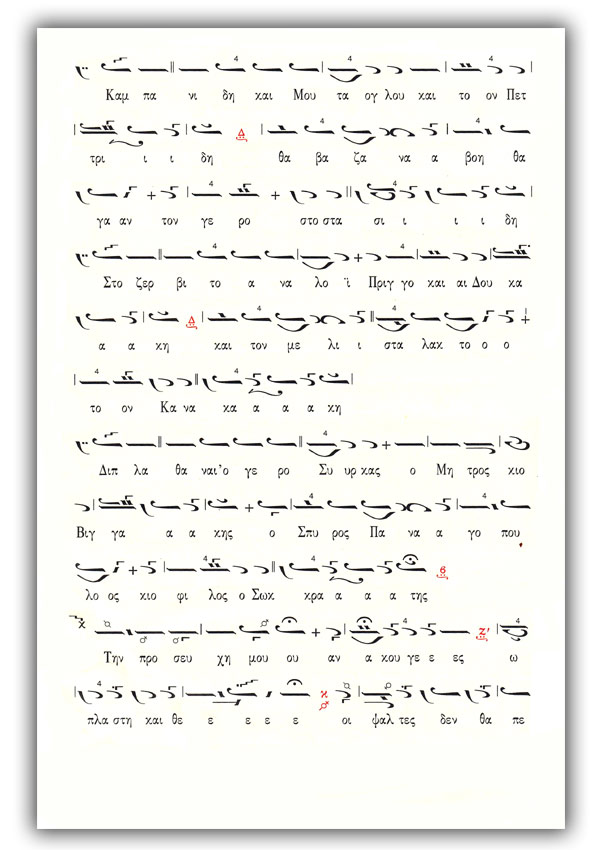 Καμ πα νι δη και Μου τα ογ λου και το ον Πετ
τρι ι ι δη θα βα ζα να α βοη θα
γα αν τον γε ρο στο στα σι ι ι ι δη
Στο ζερ βι το α να λο ϊ Πριγ γο και αι Δου κα
α α κη και τον με λι ι στα λακ το ο ο
το ον Κα να κα α α α κη
Διπ λα θα ναι'ο γε ρο Συ υρ κας ο Μη τρος κιο
Βιγ γα α α κης ο Σπυ ρος Πα να α γο που
λο ος κιο φι λος ο Σωκ κρα α α α της
Την προ σευ χη μου ου αν α κου γε ε ες ω
πλα στη και θε ε ε ε ε οι ψαλ τες δεν θα πε